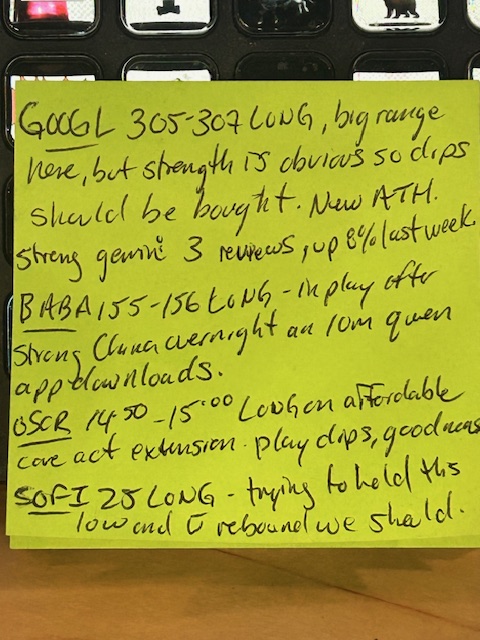 GOOGL 305-307 LONG, big range
here, but strength is obvious so dips
should be bought. New ATH.
Strong gemini 3 reviews, up 8% last week.
BABA 155-156 LONG - in play after
strong China overnight an 10m quwen
app downloads.
OSCR 14.50 - 15.00 Long on affordable
care act extension. play dips, good news
SOFI 25 LONG - trying to hold this
low and rebound we should.